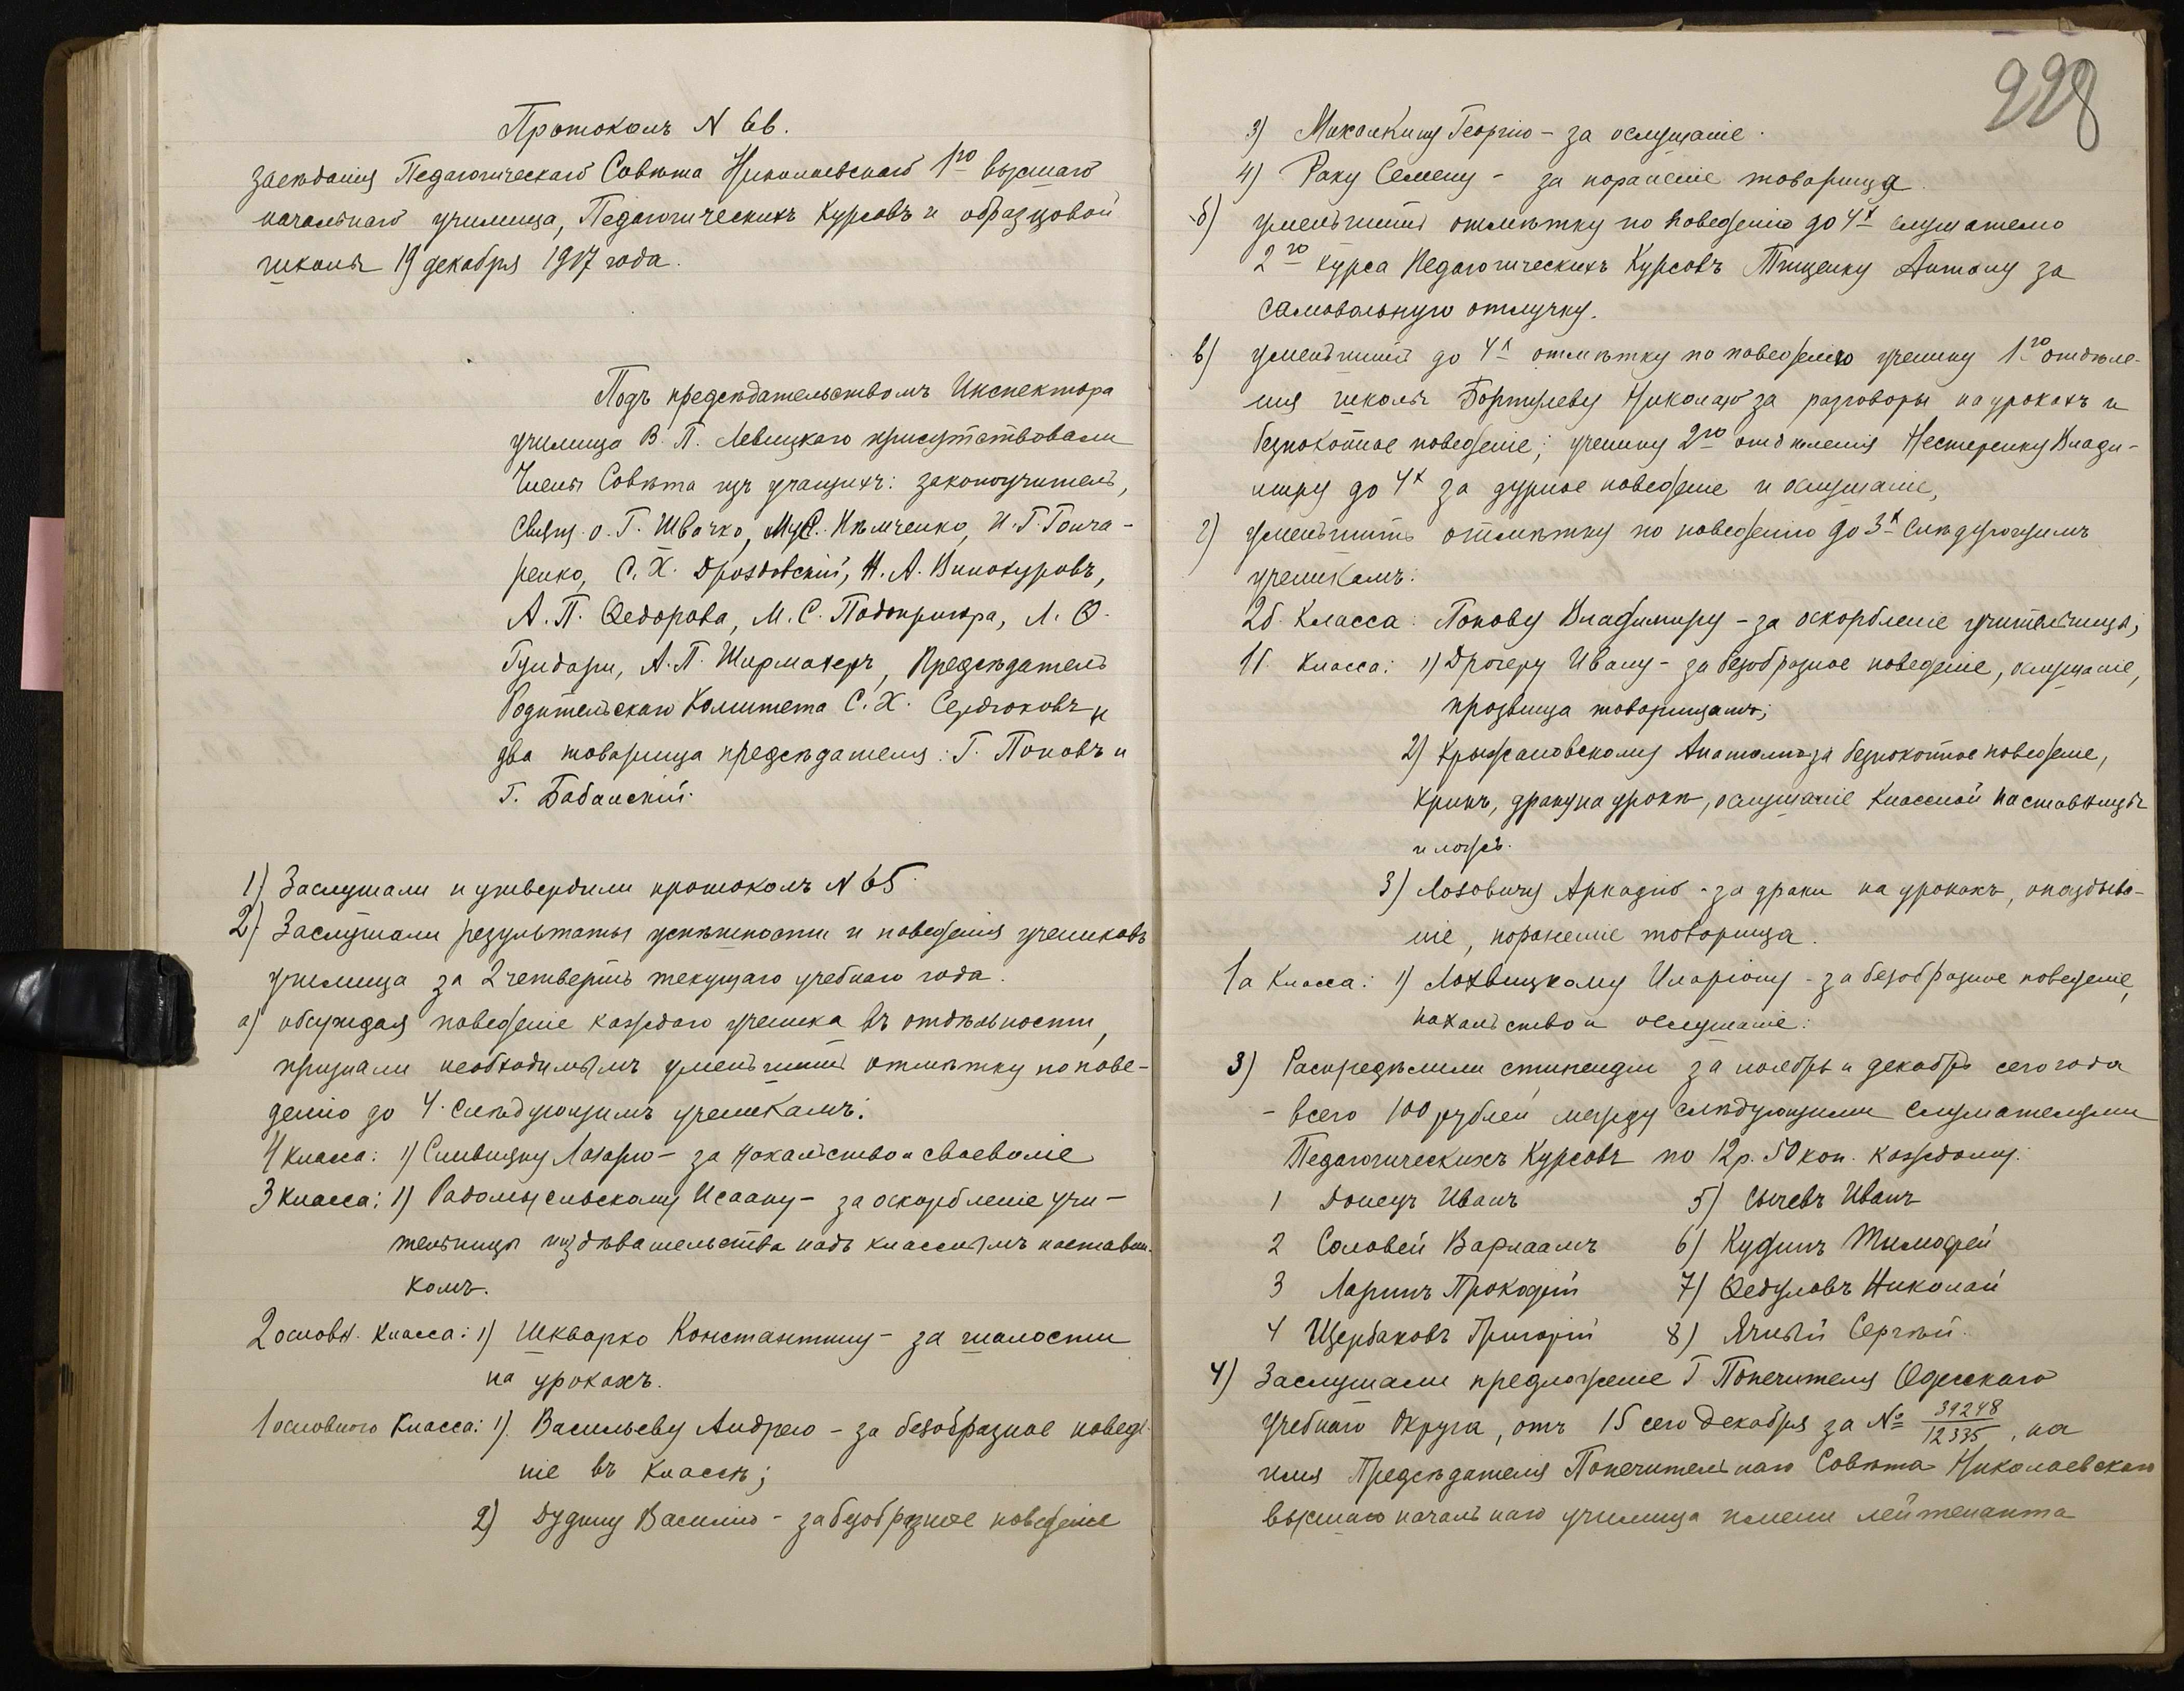 Протоколъ N 66.
засѣданія Педагогическаго Совѣта Николаевскаго 1го высшаго
начальнаго училища, Педагогическихъ Курсовъ и образцовой
школы 19 декабря 1917 года.
Подъ предсѣдательствомъ Инспектора
училища В. П. Левицкаго присутствовали
Члены Совѣта изъ учащихъ: законоучитель,
Свящ. о. Г. Швачко, Нѣмченко, И. Г. Гонча-
ренко, С. Х. Дроздовскій, Н. А. Винокуровъ,
А. П. Ѳедорова, М. С. Подопригора, Л. Ѳ.
Гундари, А. П. Ширмахеръ, Предсѣдатель
Родительскаго Комитета С. Х. Сердюковъ и
два товарища предсѣдателя: Г. Поповъ и
Г. Бабанскій.
1) Заслушали и утвердили протоколъ N 65.
2) Заслушали результаты успѣшности и поведенія учениковъ
училища за 2 четверть текущаго учебнаго года.
а) обсуждая поведеніе каждаго ученика въ отдѣльности,
признали необходимымъ уменьшить отмѣтку по пове-
денію до 4 слѣдующимъ ученикамъ:
4 класса: 1) Сливицну Лазарю – за нахальство и своеволіе
3 класса: 1) Радомысльскому Исааку – за оскорбленіе учи-
тельницы издѣвательства надъ класснымъ наставни-
комъ.
2 основн. класса: 1) Шкварко Константину – за шалости
на урокахъ.
1 основного Класса: 1). Васильеву Андрею – за безобразное поведе-
ніе въ классѣ;
2) Дудину Василію – за безобразное поведеніе
228
3) Макалкину Георгію – за ослушаніе.
4) Раку Семену – за пораненіе товарища.
б) уменьшить отмѣтку по поведенію до 4х слушателю
2го курса Педагогическихъ Курсовъ Тищенку Антону за
самовольную отлучку.
в) уменьшить до 4х отмѣтку по поведенію ученику 1го отдѣле-
нія школы Бортулеву Николаю за разговоры на урокахъ и
безпокойное поведеніе; ученику 2го отдѣленія Нестеренку Влади-
миру до 4х за дурное поведеніе и ослушаніе,
г) уменьшить отмѣтку по поведенію до 3х слѣдующимъ
ученикамъ:
2б. Класса: Попову Владимиру – за оскорбленіе учительницы;
1б. Класса: 1) Дрогеру Ивану – за безобразное поведеніе, ослушаніе,
прозвища товарищамъ;
2) Крыжановскому Анатолію за безпокойное поведеніе,
крикъ, драку на урокѣ, ослушаніе классной наставницы
и ложь.
3) Лозовичу Аркадію – за драки на урокахъ, опаздыва-
ніе, пораненіе товарища.
1а Класса: 1) Лохвицкому Иларіону – за безобразное поведеніе,
нахальство и ослушаніе.
3) Распредѣлили стипендіи за ноябрь и декабрь сего года
– всего 100 рублей между слѣдующими слушателями
Педагогическихъ Курсовъ по 12 р. 50 коп. каждому:
1 Донецъ Иванъ 5) Сычевъ Иванъ
2 Соловей Варлаамъ 6) Кудинъ Тимофей
3 Ларинъ Прокофій 7) Ѳедуловъ Николай
4 Щербаковъ Григорій 8) Ячный Сергѣй.
4) Заслушали предложеніе Г. Попечителя Одесскаго
Учебнаго Округа, отъ 15 сего Декабря за № 39248/12335, на
имя Предсѣдателя Попечительнаго Совѣта Николаевскаго
высшаго начальнаго училища имени лейтенанта